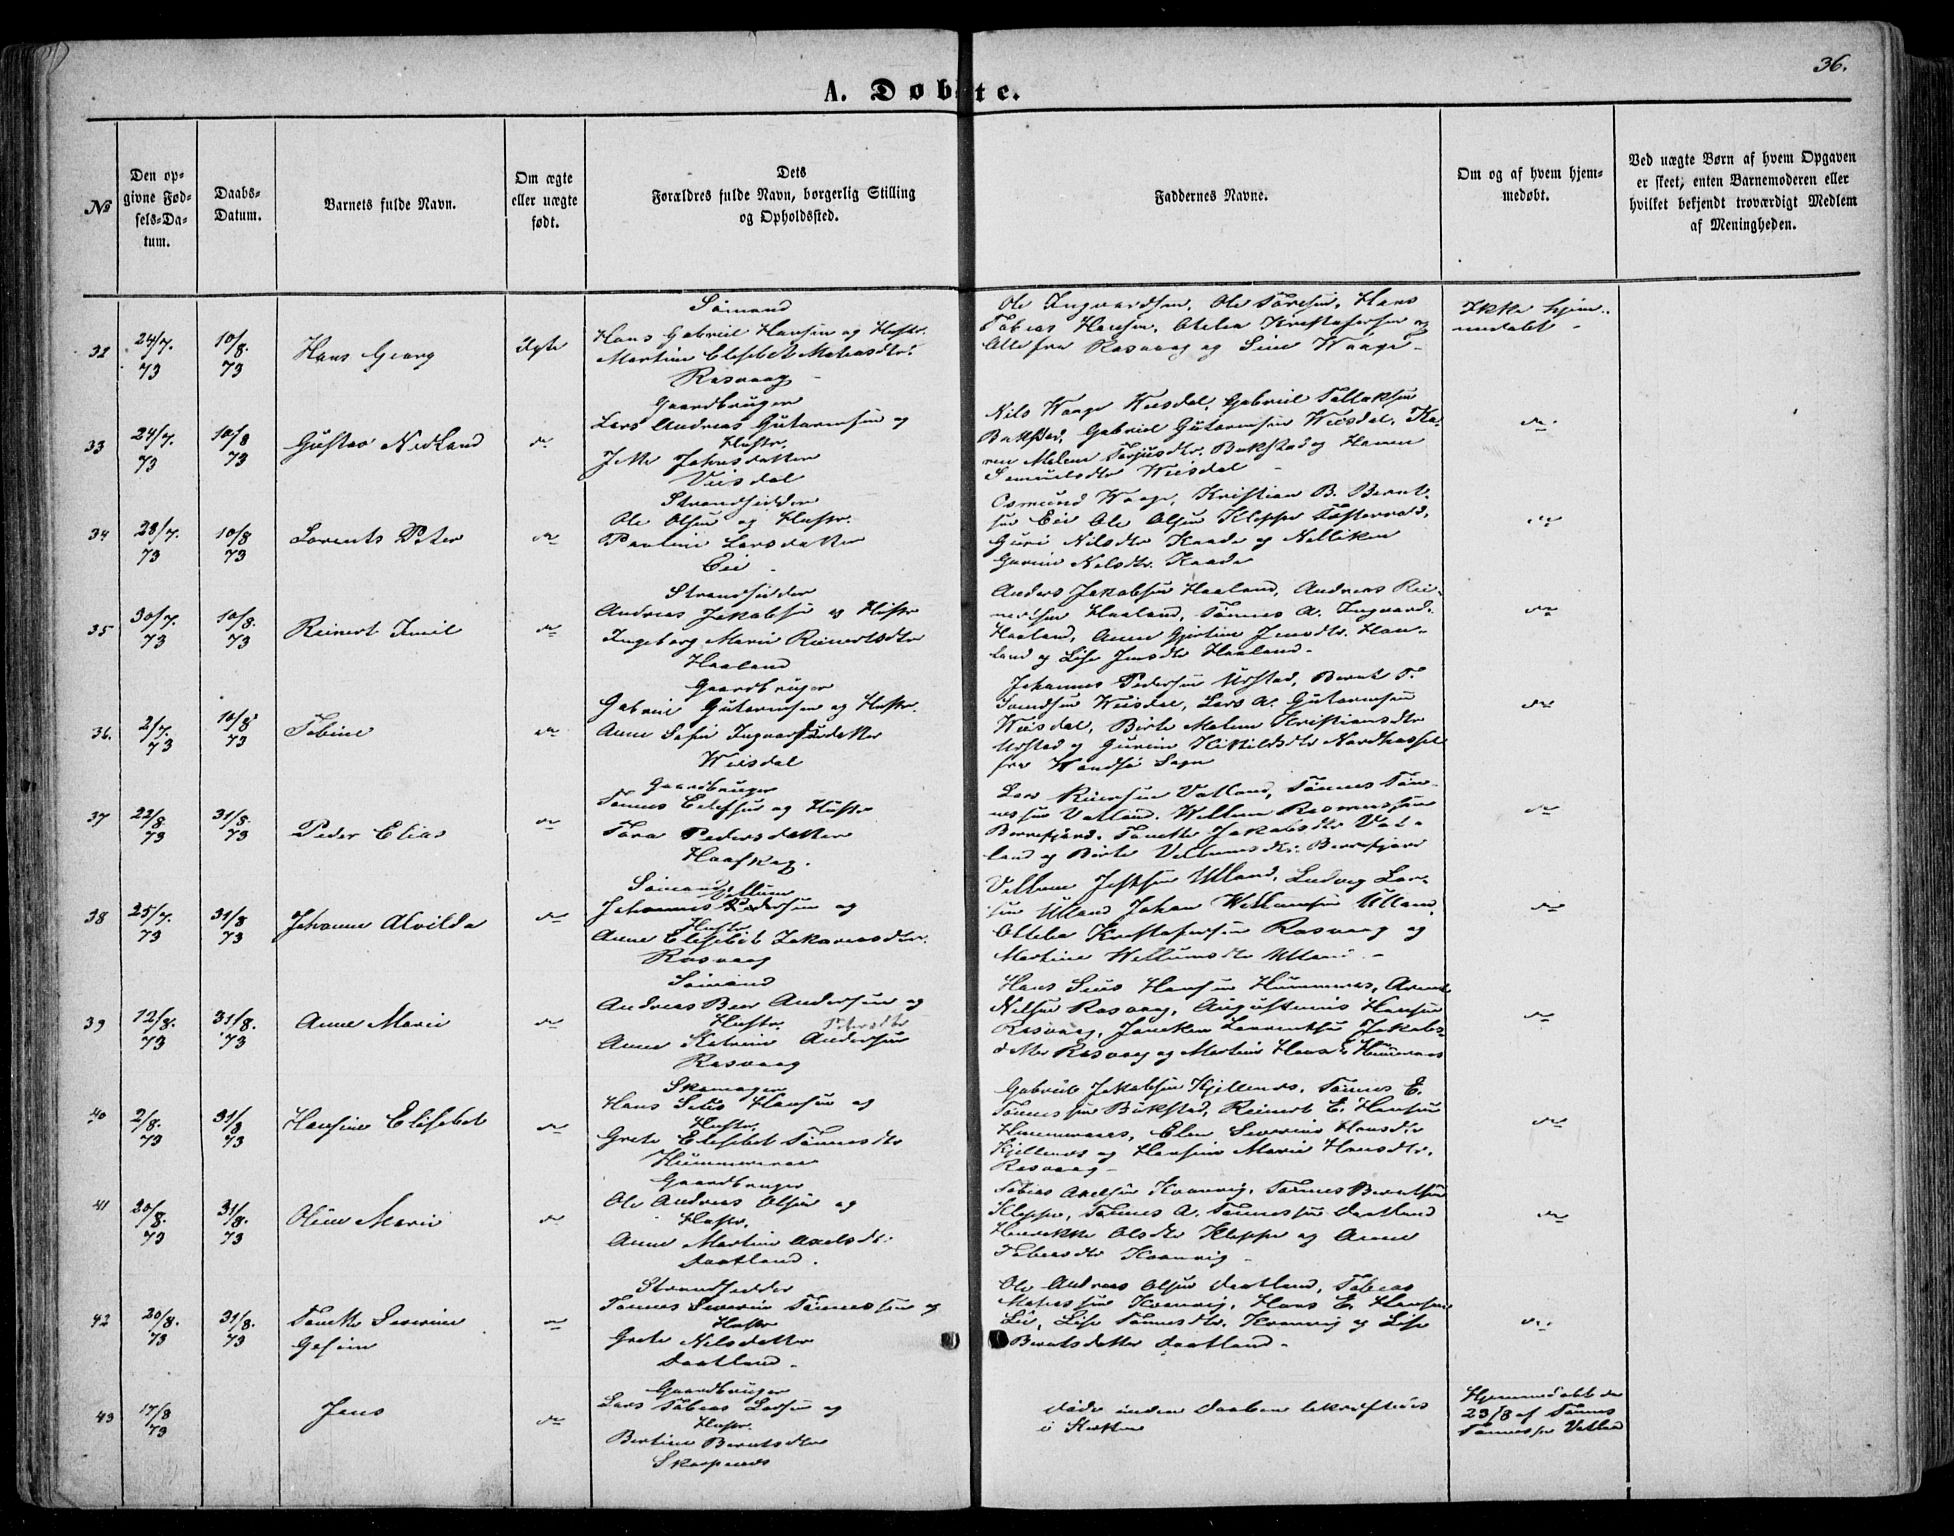 36.
A. Døbte.
№
Den op-
givne Fød-
sels-Da-
tum.
Daabs-
Datum.
Barnets fulde Navn.
Om ægte
eller uægte
født.
Dets
Forældres fulde Navn, borgerlig Stilling
og Opholdssted.
Faddernes Navne.
Om og af hvem hjem-
medøbt.
Ved uægte Børn af hvem Opgaven
er skeet, enten Barnemoderen eller
hvilket bekjendt troværdigt Medlem
af Meningheden.
32
24/7.
73
10/8.
73
Hans Georg
Ægte
Sømand
Hans Gabriel Hansen og Hustr.
Martine Elisebet
Rasvaag
Ole Ingvardsen, Ole Tørresen, Hans
Tobias Hansen, Otelia Kristofersen og
Alle fra Rasvaag og Sine Waage
Ikke hjem-
medøbt
33
24/7.
73
10/8
73
Gustav Nedland
do
Gaardbruger
Lars Andreas Gutormsen og
Hustr.
Jette Jahnsdatter
Viisdal
Nils Waage Viisdal, Gabriel Tollaksen
Bukstad, Gabriel Gutormsen Wiisdal, Ka-
ren Malene Torjusdtr. Bukstad og Haven
Samuelsdtr Wiisdal
do
34
23/7.
73
10/8
73
Lorents Peter
do
Strandsidder
Ole Olsen og Hustr.
Pauline Larsdatter
Eie
Osmund Waage, Kristian B. Bernt-
sen Eie Ole Olsen Kleppe
Guri Nilsdtr Kaade og Nilliken
Gurine Nilsdtr. Kaade
do
35
30/7.
73
10/8.
73
Reinert Emil
do
Strandsidder
Andreas Jakobsen og Hustr
Ingeborg Marie Reinertsdtr
Haaland
Anders Jakobsen Haaland, Andreas Rei-
nertsen Haaland, Tønnes A. Ingvard.
Haaland, Anne Gjertine Jensdtr. Haa-
land og Lise Jensdtr Haaland.
do
36.
2/7.
73
10/8
73
Tobine
do
Gaardbruger
Gabriel Gutormsen og Hustr.
Anne Sofie Ingvarsdatter
Wiisdal
Johannes Pedersen Urstad, Bernt T.
Wiisdal, Lars A. Gutormsen
Wiisdal, Birte Malene Kristiansdtr
Urstad og Gurine Kitilsdtr
fra Wandsø Sogn
do
37
22/8.
73
31/8.
73
Peder Elias
do
Gaardbruger
Tønnes Eilefsen og Hustr
Tora Pedersdatter
Lars Reiersen Vatland, Tønnes Tøn-
nessen Vatland, Willum Rasmussen
Berrefjord, Tønette Jakobsdtr Vat-
land og Birte Villumsdtr. Berrefjord
do
38
25/7.
73
31/8
73
Johanne Alvilda
do
Sømand
Villum
Johannes Pedersen og
Hustr.
Anne Elisebet Zakariasdtr.
Rasvaag
Villum Ulland, Ludvig Lar-
sen Ulland Johan Willumsen Ulland,
Otelia Kristofersen Rasvaag og
Martine Willumsdtr Ulland.
do
39
12/8.
73
31/8.
73
Anne Marie
do
Sømand
Andreas Beer Andersen og
Hustr. Petersdtr
Anne Katrine Andersen
Rasvaag
Hans Seus Hansen Hummeraas,
Nilsen Rasvaag, Augustinus Hansen
Rasvaag, Janeken Laurentse Jakobs-
datter Rasvaag og Martine Hans E. Hummeraas
do
40
2/8.
73
31/8
73
Hansine Elisebet
do
Skomager
Hans Seus Hansen og
Hustr.
Grete Elisebet Tønnesdtr
Hummeraas
Gabriel Jakobsen Kjellnes, Tønnes E.
Tønnessen Bukstad, Reinert E. Hansen
Hummeraas, Elen Severine Hansdtr
Kjellnes og Hansine Marie Hansdtr.
Rasvaag
do
41
20/8.
73
31/8.
73
Oline Marie
do
Gaardbruger
Ole Andreas Olsen og
Hustr.
Anne Martine Axelsdtr.
Daatland.
Tobias Axelsen Kvanvig, Tønnes Berntsen
Kleppe, Tønnes A. Tønnessen Daatland
Henrikke Olsdtr Kleppe og Anne
Tobiasdtr Kvanvig
do
42
20/8.
73
31/8.
73
Tønette Severine
Gesine
do
Strandsidder
Tønnes Severin Tønnessen og
Hustr
Grete Nilsdatter
Daatland
Ole Andreas Olsen Daatland, Tobias
Kvanvig, Hans E. Hansen
Lie, Lise Tønnesdtr. Kvanvig og Lise
Berntsdatter Daatland
do
43
17/8
73
Jens
do
Gaardbruger
Lars Tobias Larsen og
Hustr.
Bertine Berntsdtr
Skarpnes
døde inden Daaben bekræftedes
i Kirken
Hjemmedøbt den
23/8 af Tønnes
Tønnessen Vatland